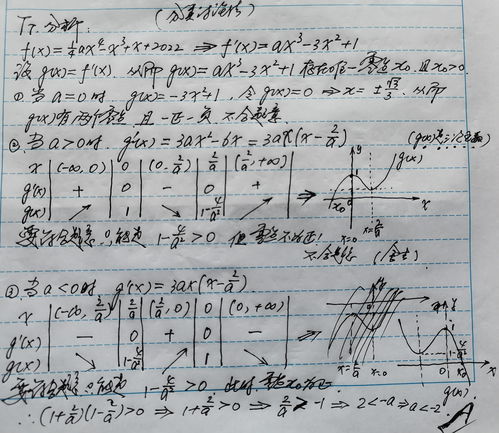 下分析: (分类讨论法)
f(x)=¼ax⁴-x³+x+2022 ⇒ f'(x)=ax³-3x²+1
设 g(x)=f'(x). 从而 g(x)=ax³-3x²+1 存在唯一零点x₀ 且x₀>0
① 当 a=0时 g(x)=-3x²+1, 令g(x)=0 ⇒ x=±√3/3. 从而
g(x)有两个零点 且一正一负 不合题意
② 当 a>0时. g'(x)=3ax²-6x=3ax(x-2/a)
x | (-∞,0) | 0 | (0,2/a) | 2/a | (2/a,+∞)
g'(x) | + | 0 | - | 0 | +
g(x) | ↗ | 1 | ↘ | 1-4/a² | ↗ ⇒
g(x) 1 x₀ 0 x x=0 x=2/a
1-4/a²>0 但零点不为正!
不合题意 (舍去)
③ 当 a<0时, g'(x)=3ax(x-2/a)
x | (-∞,2/a) | 2/a | (2/a,0) | 0 | (0,+∞)
g'(x) | - | 0 | + | 0 | -
g(x) | ↘ | 1-4/a² | ↗ | 1 | ↘ ⇒
y 1 1-4/a² 0 x₀ x g(x) x=2/a x=0
1-4/a²>0 此时零点x₀为正
∴ (1+2/a)(1-2/a)>0 ⇒ 1+2/a>0 ⇒ 2/a>-1 ⇒ 2<-a ⇒ a<-2. A